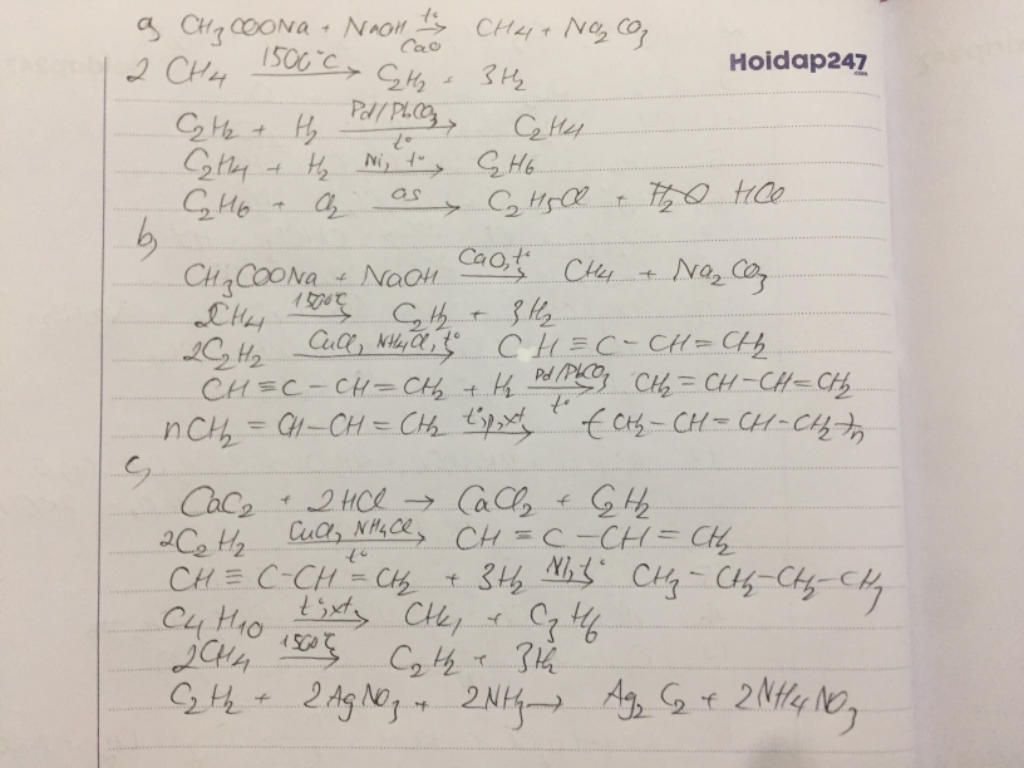 a, CH3COONa + NaOH t° → CaO CH4 + Na2CO3
Hoidap247.com
2 CH4 1500°C → C2H2 + 3H2
C2H2 + H2 Pd/PbCO3 → t° C2H4
C2H4 + H2 Ni, t° → C2H6
C2H6 + Cl2 as → C2H5Cl + H2O HCl
b,
CH3COONa + NaOH CaO, t° → CH4 + Na2CO3
2CH4 1500°C → C2H2 + 3H2
2C2H2 CuCl, NH4Cl, t° → CH ≡ C - CH = CH2
CH ≡ C - CH = CH2 + H2 Pd/PbCO3 → t° CH2 = CH - CH = CH2
nCH2 = CH - CH = CH2 t°,p,xt → -( CH2 - CH = CH - CH2 )-n
c,
CaC2 + 2HCl → CaCl2 + C2H2
2C2H2 CuCl, NH4Cl → t° CH ≡ C - CH = CH2
CH ≡ C - CH = CH2 + 3H2 Ni, t° → CH3 - CH2 - CH2 - CH3
C4H10 t°, xt → CH4 + C3H6
2CH4 1500°C → C2H2 + 3H2
C2H2 + 2AgNO3 + 2NH3 → Ag2C2 + 2NH4NO3